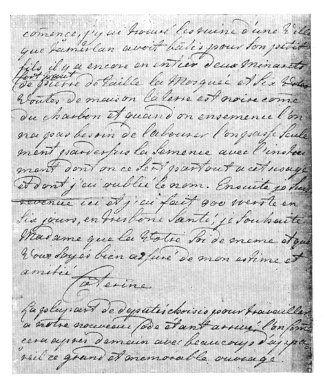 comence, j'y ai trouvé les ruine d'une Ville
que Tamerlan avoit batis pour son petit
fils il y a encore en entier deux Minarets
fort haut
de pierre de taille la Mosquée et six
Voutes de maison la terre est noire come
du charbon et quand on ensemence l'on
na pas besoin de labourer l'on passe seule
ment par dessus la Semence avec l'instru
ment dont on ce sert partout a cet usage
et dont j'ai oublié le nom. Ensuite je suis
revenue ici et j'ai fait 900 werste en
Six jours, en tres bone Santé; je Souhaite
Madame que la Votre Soi de meme et que
Vous soyes bien assuré de mon estime et
amitié
Caterine
La plupart de deputés choisis pour travailler
a notre nouveau Code étant arrivé l'on
cera apres demain avec beaucoup d'appa
reil ce grand et memorable ouvrage.